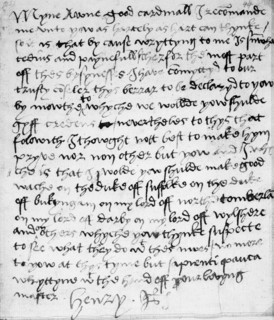 Myne awne good cardinall I recomande
me unto yow as hartely as hart can thynke
so it is that by cause wryttyng to me is somwhat
tedius and paynefull therfor the most part
off thes bysynesses I have commyttyd to our
trusty conseler thys berrar to be declaryd to yow
by mowthe to whyche we wolde yow shulde
gyff credens nevertheles to thys that
folowith I thowght nott best to make hym
pryve nor non other but yow and I whyche
is that I wolde yow shulde make good
wache on the duke off suffolke on the duke
off bukyngam on my lord off northomberland
on my lord off darby on my lord off wylshere
and on others whyche yow thynke suspecte
to see what they do with thes news no more
to yow at thys tyme but sapienti pauca
wryttyne with the hand off your lovyng
master Henry R